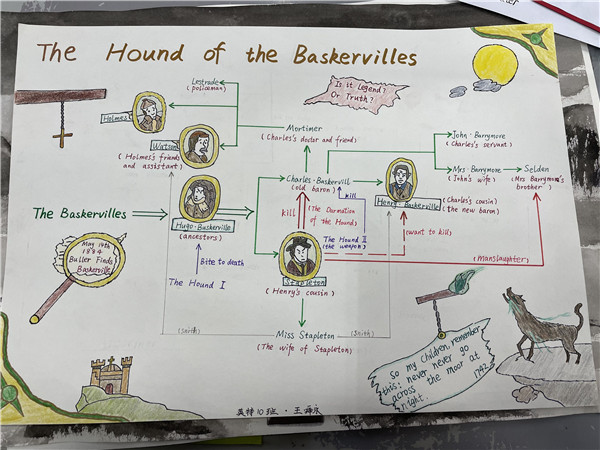 The Hound of the Baskervilles
Lestrade
(policeman)
Is it Legend?
Or Truth?
Holmes
Watson
(Holmes's friends
and assistant)
Mortimer
(Charles's doctor and friend)
John·Barrymore
(Charles's servant)
Mrs Barrymore
(John's wife)
Selden
(Mrs Barrymore's
brother)
Charles·Baskervill
(old baron)
Henry·Baskerville
(Charles's cousin)
(the new baron)
The Baskervilles
Hugo·Baskerville
(ancestors)
kill
(The Darmation
of the Hound)
kill
The Hound II
(the weapon)
(want to kill)
(Manslaughter)
May 14th
1884
Buller Finds
Baskerville
Bite to death
The Hound I
Stapleton
(Henry's cousin)
Miss Stapleton
(The wife of Stapleton)
So my children, remember
this: never never go
across the moor at
night.
1742
10班·王